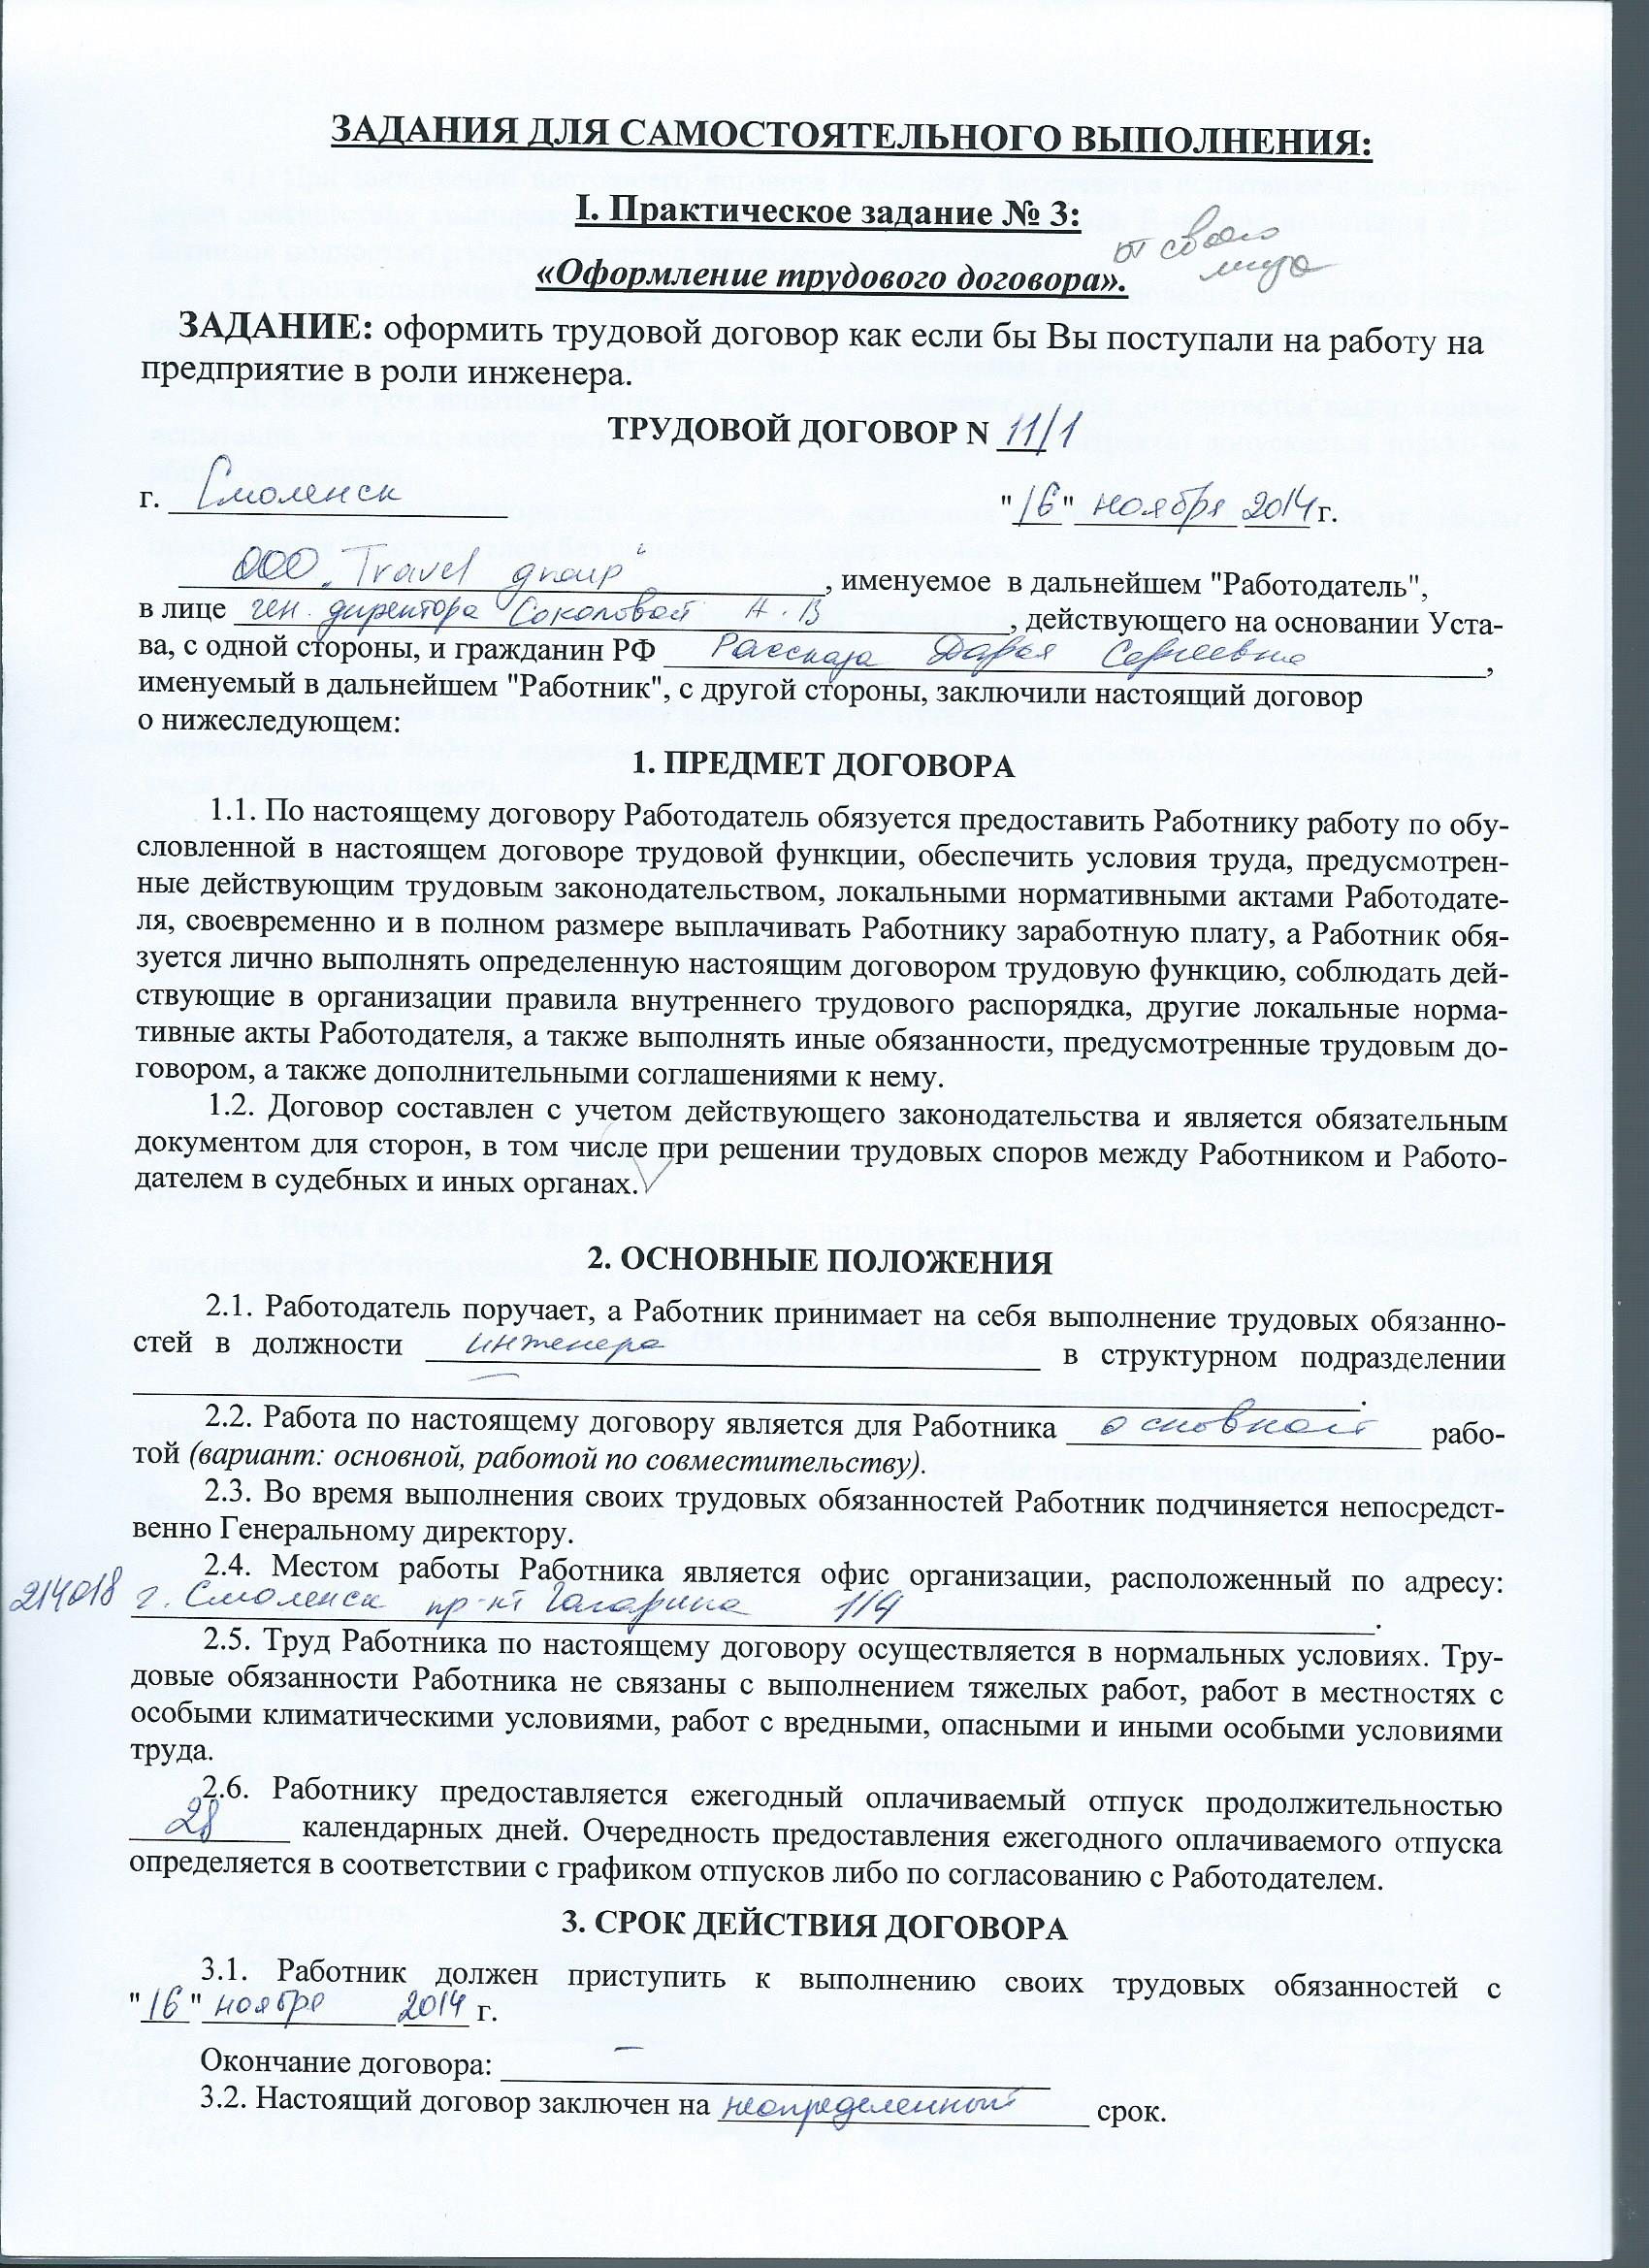 ЗАДАНИЯ ДЛЯ САМОСТОЯТЕЛЬНОГО ВЫПОЛНЕНИЯ:
I. Практическое задание № 3:
от своего
лица
«Оформление трудового договора».
ЗАДАНИЕ: оформить трудовой договор как если бы Вы поступали на работу на
предприятие в роли инженера.
ТРУДОВОЙ ДОГОВОР N 11/1
г. Смоленск "16" ноября 2014 г.
ООО „Travel group“, именуемое в дальнейшем "Работодатель",
в лице ген. директора Соколовой А. В, действующего на основании Уста-
ва, с одной стороны, и гражданин РФ Дарья Сергеевна,
именуемый в дальнейшем "Работник", с другой стороны, заключили настоящий договор
о нижеследующем:
1. ПРЕДМЕТ ДОГОВОРА
1.1. По настоящему договору Работодатель обязуется предоставить Работнику работу по обу-
словленной в настоящем договоре трудовой функции, обеспечить условия труда, предусмотрен-
ные действующим трудовым законодательством, локальными нормативными актами Работодате-
ля, своевременно и в полном размере выплачивать Работнику заработную плату, а Работник обя-
зуется лично выполнять определенную настоящим договором трудовую функцию, соблюдать дей-
ствующие в организации правила внутреннего трудового распорядка, другие локальные норма-
тивные акты Работодателя, а также выполнять иные обязанности, предусмотренные трудовым до-
говором, а также дополнительными соглашениями к нему.
1.2. Договор составлен с учетом действующего законодательства и является обязательным
документом для сторон, в том числе при решении трудовых споров между Работником и Работо-
дателем в судебных и иных органах.
2. ОСНОВНЫЕ ПОЛОЖЕНИЯ
2.1. Работодатель поручает, а Работник принимает на себя выполнение трудовых обязанно-
стей в должности инженера в структурном подразделении
—.
2.2. Работа по настоящему договору является для Работника основной рабо-
той (вариант: основной, работой по совместительству).
2.3. Во время выполнения своих трудовых обязанностей Работник подчиняется непосредст-
венно Генеральному директору.
2.4. Местом работы Работника является офис организации, расположенный по адресу:
214018 г. Смоленск пр-кт Гагарина 114.
2.5. Труд Работника по настоящему договору осуществляется в нормальных условиях. Тру-
довые обязанности Работника не связаны с выполнением тяжелых работ, работ в местностях с
особыми климатическими условиями, работ с вредными, опасными и иными особыми условиями
труда.
2.6. Работнику предоставляется ежегодный оплачиваемый отпуск продолжительностью
28 календарных дней. Очередность предоставления ежегодного оплачиваемого отпуска
определяется в соответствии с графиком отпусков либо по согласованию с Работодателем.
3. СРОК ДЕЙСТВИЯ ДОГОВОРА
3.1. Работник должен приступить к выполнению своих трудовых обязанностей с
"16" ноября 2014 г.
Окончание договора: —
3.2. Настоящий договор заключен на неопределенный срок.